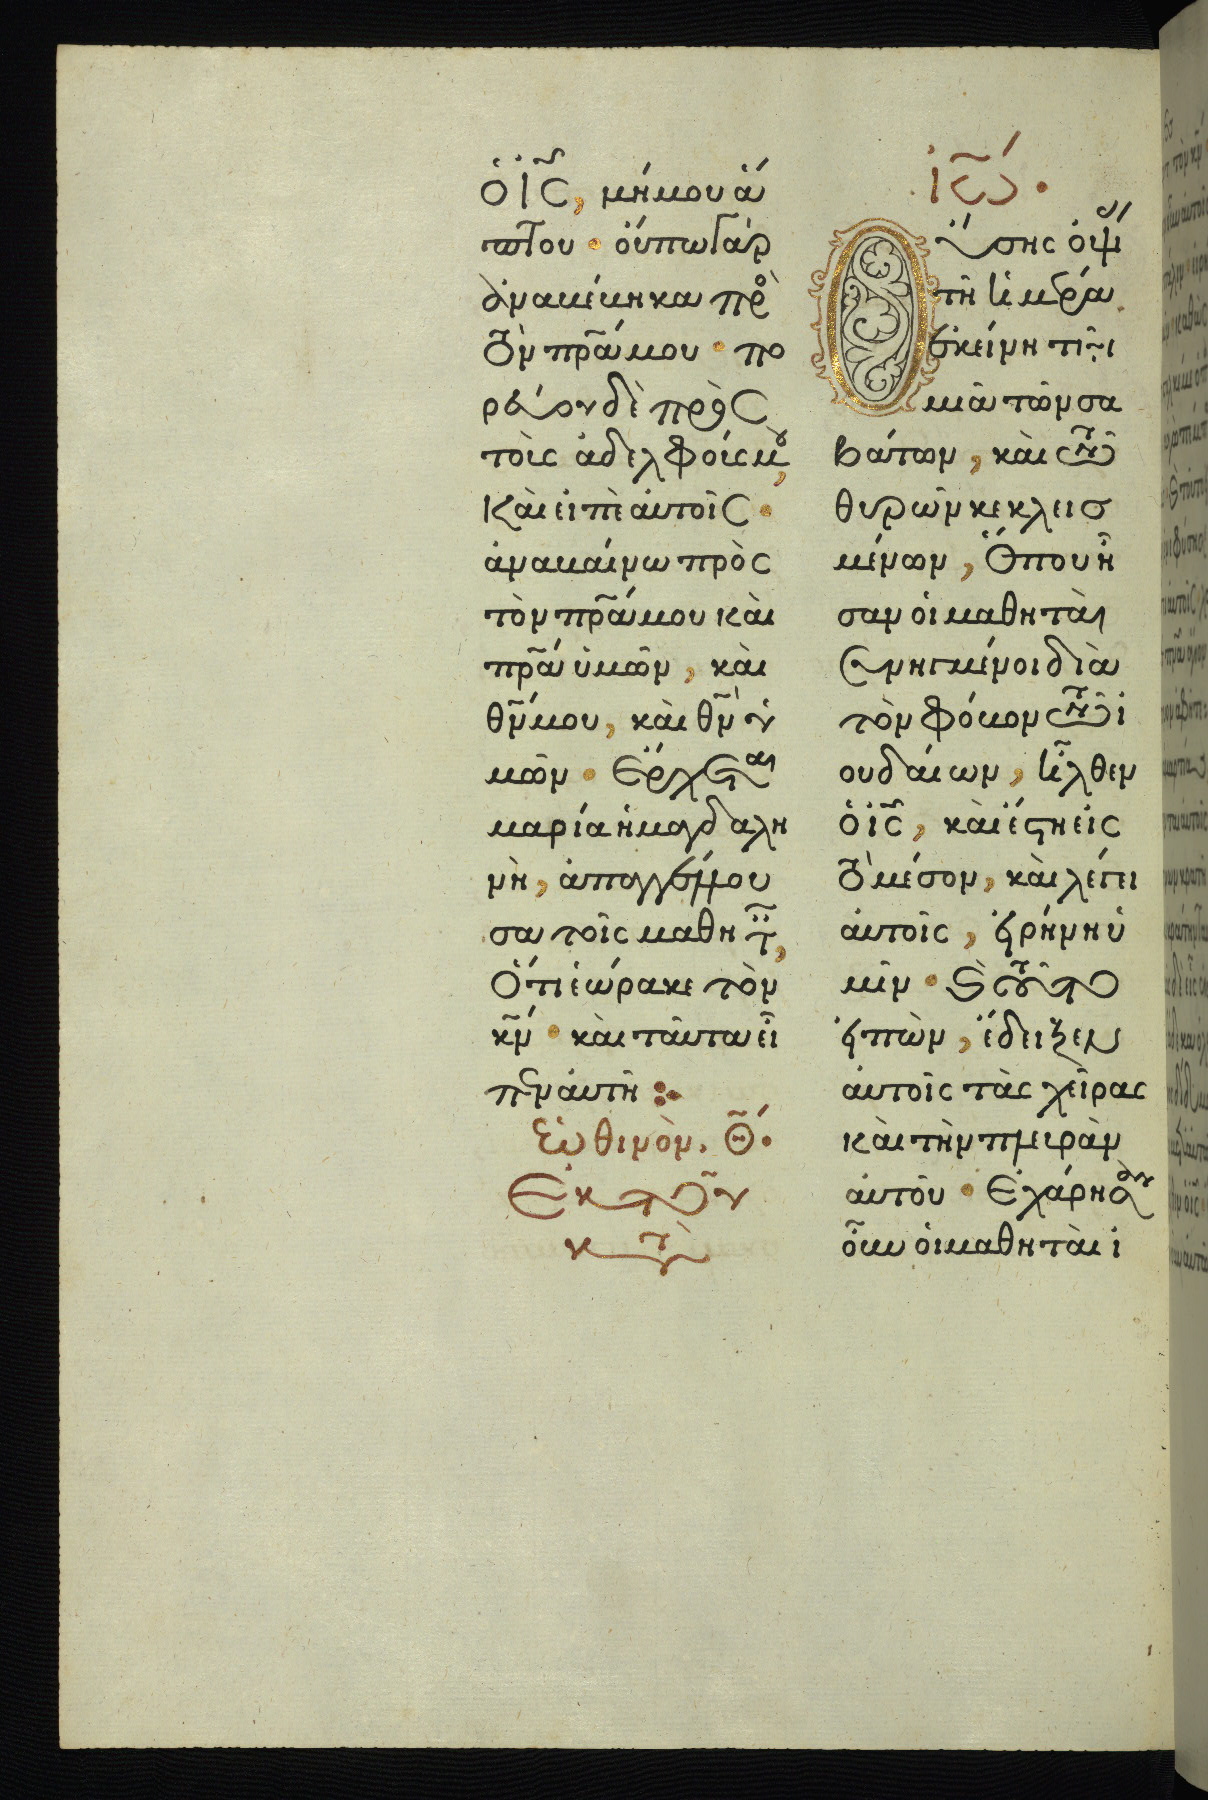 ὁ ἰ̅ς̅, μή μου ἅ
πτου · οὔπω γὰρ
ἀναβέβηκα πρὸ
τὸν π̅ρ̅α μου · πο
ρεύου δὲ πρὸς
τοὺς ἀδελφούς μου,
καὶ εἰπὲ αὐτοῖς ·
ἀναβαίνω πρὸς
τὸν π̅ρ̅α μου καὶ
π̅ρ̅α ὑμῶν, καὶ
θ̅ν̅ μου, καὶ θ̅ν̅ ὑ
μῶν · ἔρχεται
μαρία ἡ μαγδαλη
νὴ, ἀπαγγέλλου
σα τοῖς μαθητ,
ὅτι ἑώρακε τὸν
κ̅ν̅ · καὶ ταῦτα εἶ
πεν αὐτῆ :·
Ἑωθινὸν. Θ̅.
Ἐκ τοῦ
κτ
ἰω̅.
Οὔσης ὀψί
τῆ ἡμέρα
ἐκείνη τῆ
μιᾶ τῶν σα
βάτων, καὶ τῶν
θυρῶν κεκλεισ
μένων, ὅπου ἦ
σαν οἱ μαθηταὶ
συνηγμένοι διὰ
τὸν φόβον τῶν ἰ
ουδαίων, ἦλθεν
ὁ ἰ̅ς̅, καὶ ἔστη εἰς
τὸ μέσον, καὶ λέγει
αὐτοῖς, εἰρήνη ὑ
μῖν · καὶ τοῦτο
εἰπὼν, ἔδειξεν
αὐτοῖς τὰς χεῖρας
καὶ τὴν πλευρὰν
αὐτοῦ · ἐχάρησαν
οὖν οἱ μαθηταὶ ἰ